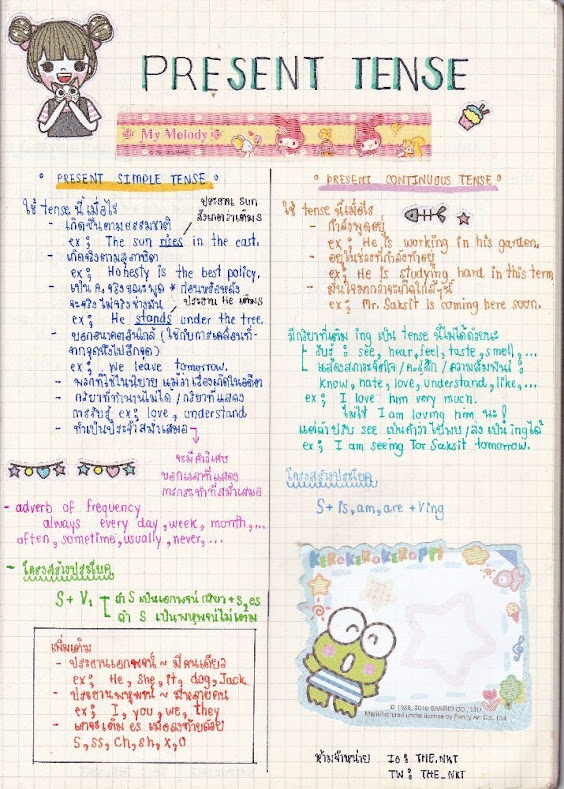 PRESENT TENSE
My Melody
PRESENT SIMPLE TENSE
ใช้ tense นี้เมื่อไร
ประธาน sun
สังเกตว่าเติม s
- เกิดขึ้นตามธรรมชาติ
ex ; The sun rises in the east.
- เกิดจริงตามสุภาษิต
ex ; Honesty is the best policy.
- เป็น A. จริงขณะพูด * ก่อนหรือหลัง
จะจริงไม่จริงช่างมัน
ประธาน He เติม s
ex ; He stands under the tree.
- บอกอนาคตอันใกล้ (ใช้กับการเคลื่อนที่
จากจุดหนึ่งไปอีกจุด)
ex ; We leave tomorrow.
- พวกที่ใช้ในนิยาย แม้ว่าเรื่องเกิดในอดีต
- กริยาที่ทำนานไม่ได้ / กริยาที่แสดง
การรับรู้ ex ; love, understand
- ทำเป็นประจำสม่ำเสมอ
จะมีคำวิเศษ
บอกเวลาที่แสดง
การกระทำที่สม่ำเสมอ
- adverb of frequency
always every day, week, month, ...
often, sometime, usually, never, ...
- โครงสร้างประโยค
S + V1 ถ้า S เป็นเอกพจน์ กริยา + s, es
ถ้า S เป็นพหูพจน์ไม่เติม
เพิ่มเติม
- ประธานเอกพจน์ ~ มีคนเดียว
ex ; He, She, It, dog, Jack
- ประธานพหูพจน์ ~ มีหลายคน
ex ; I, you, we, they
- เราจะเติม es เมื่อลงท้ายด้วย
s, ss, ch, sh, x, o
PRESENT CONTINUOUS TENSE
ใช้ tense นี้เมื่อไร
- กำลังพูดอยู่
ex ; He is working in his garden.
- อยู่ในช่วงที่กำลังทำอยู่
ex ; He is studying hard in this term
- มั่นใจมากว่าจะเกิดใกล้ๆนี้
ex ; Mr. Saksit is coming here soon.
มีกริยาที่เติม ing เป็น tense นี้ไม่ได้ด้วยนะ
รับรู้ : see, hear, feel, taste, smell, ...
แสดงสภาวะจิตใจ / ค.รู้สึก / ความสัมพันธ์ :
know, hate, love, understand, like, ...
ex ; I love him very much.
ไม่ใช่ I am loving him นะ !
แต่ถ้าปรับ see เป็นคำว่าไปพบ / ส่ง เป็น ing ได้
ex ; I am seeing Tor Saksit tomorrow.
โครงสร้างประโยค
S + is, am, are + Ving
KEROKEROKEROPPI
© 1988, 2016 SANRIO CO., LTD.
Manufactured under license by Fancy Art Co., Ltd.
ห้ามจำหน่าย IG : THE.NKT
TW : THE_NKT